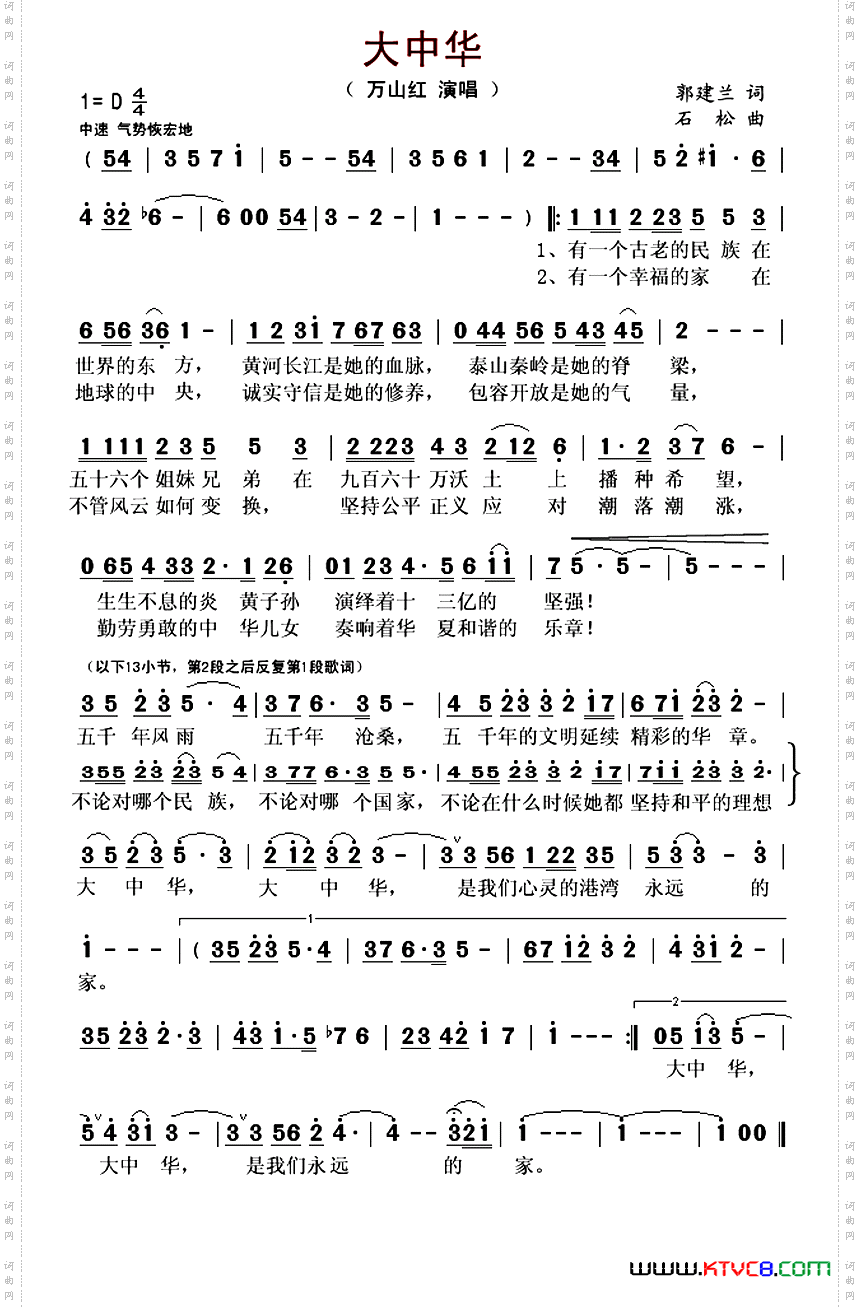 大中华
（ 万山红 演唱 ）
1= D 4/4
郭建兰 词
中速 气势恢宏地
石 松 曲
( 54 | 3 5 7 i | 5 - - 54 | 3 5 6 1 | 2 - - 34 | 5 2 #i · 6 |
4 32 b6 - | 6 00 54 | 3 - 2 - | 1 - - - ) ‖: 1 11 2 23 5 5 3 |
1、有一个古老的民 族 在
2、有一个幸福的家 在
6 56 36 1 - | 1 2 3i 7 67 63 | 0 44 56 5 43 45 | 2 - - - |
世界的东 方， 黄河长江是她的血脉， 泰山秦岭是她的脊 梁，
地球的中 央， 诚实守信是她的修养， 包容开放是她的气 量，
1 111 2 3 5 5 3 | 2 223 4 3 2 12 6 | 1· 2 3 7 6 - |
五十六个 姐妹 兄 弟 在 九百六十 万沃 土 上 播 种 希 望，
不管风云 如何 变 换， 坚持公平 正义 应 对 潮 落 潮 涨，
0 65 4 33 2· 1 26 | 01 23 4· 5 6 ii | 7 5· 5 - | 5 - - - |
生生不息的炎 黄子孙 演绎着十 三亿的 坚强！
勤劳勇敢的中 华儿女 奏响着华 夏和谐的 乐章！
（以下13小节，第2段之后反复第1段歌词）
3 5 2 3 5 · 4 | 3 7 6· 3 5 - | 4 5 23 3 2 i7 | 6 7i 23 2 - |
五千 年风雨 五千年 沧桑， 五 千年的文明延续 精彩的华 章。
355 23 23 5 4 | 3 77 6·3 5 5· | 4 55 23 3 2 i7 | 7ii 23 3 2· |
不论对哪个民 族， 不论对哪 个国家， 不论在什么时候她都 坚持和平的理想
3 5 2 3 5 · 3 | 2 i2 3 2 3 - | 3 3 56 1 22 35 | 5 3 3 - 3 |
大 中 华， 大 中 华， 是我们心灵的港湾 永远 的
1
i - - - | ( 35 23 5·4 | 37 6·3 5 - | 67 i2 3 2 | 4 3i 2 - |
家。
35 23 2·3 | 43 i·5 b7 6 | 23 42 i 7 | i - - - :‖ 05 i3 5 - |
2
大中 华，
5 4 3i 3 - | 3 3 56 2 4· | 4 - - 32i | i - - - | i - - - | i 00 ‖
大中 华， 是我们永远 的 家。
www.KTVC8.com
词曲网